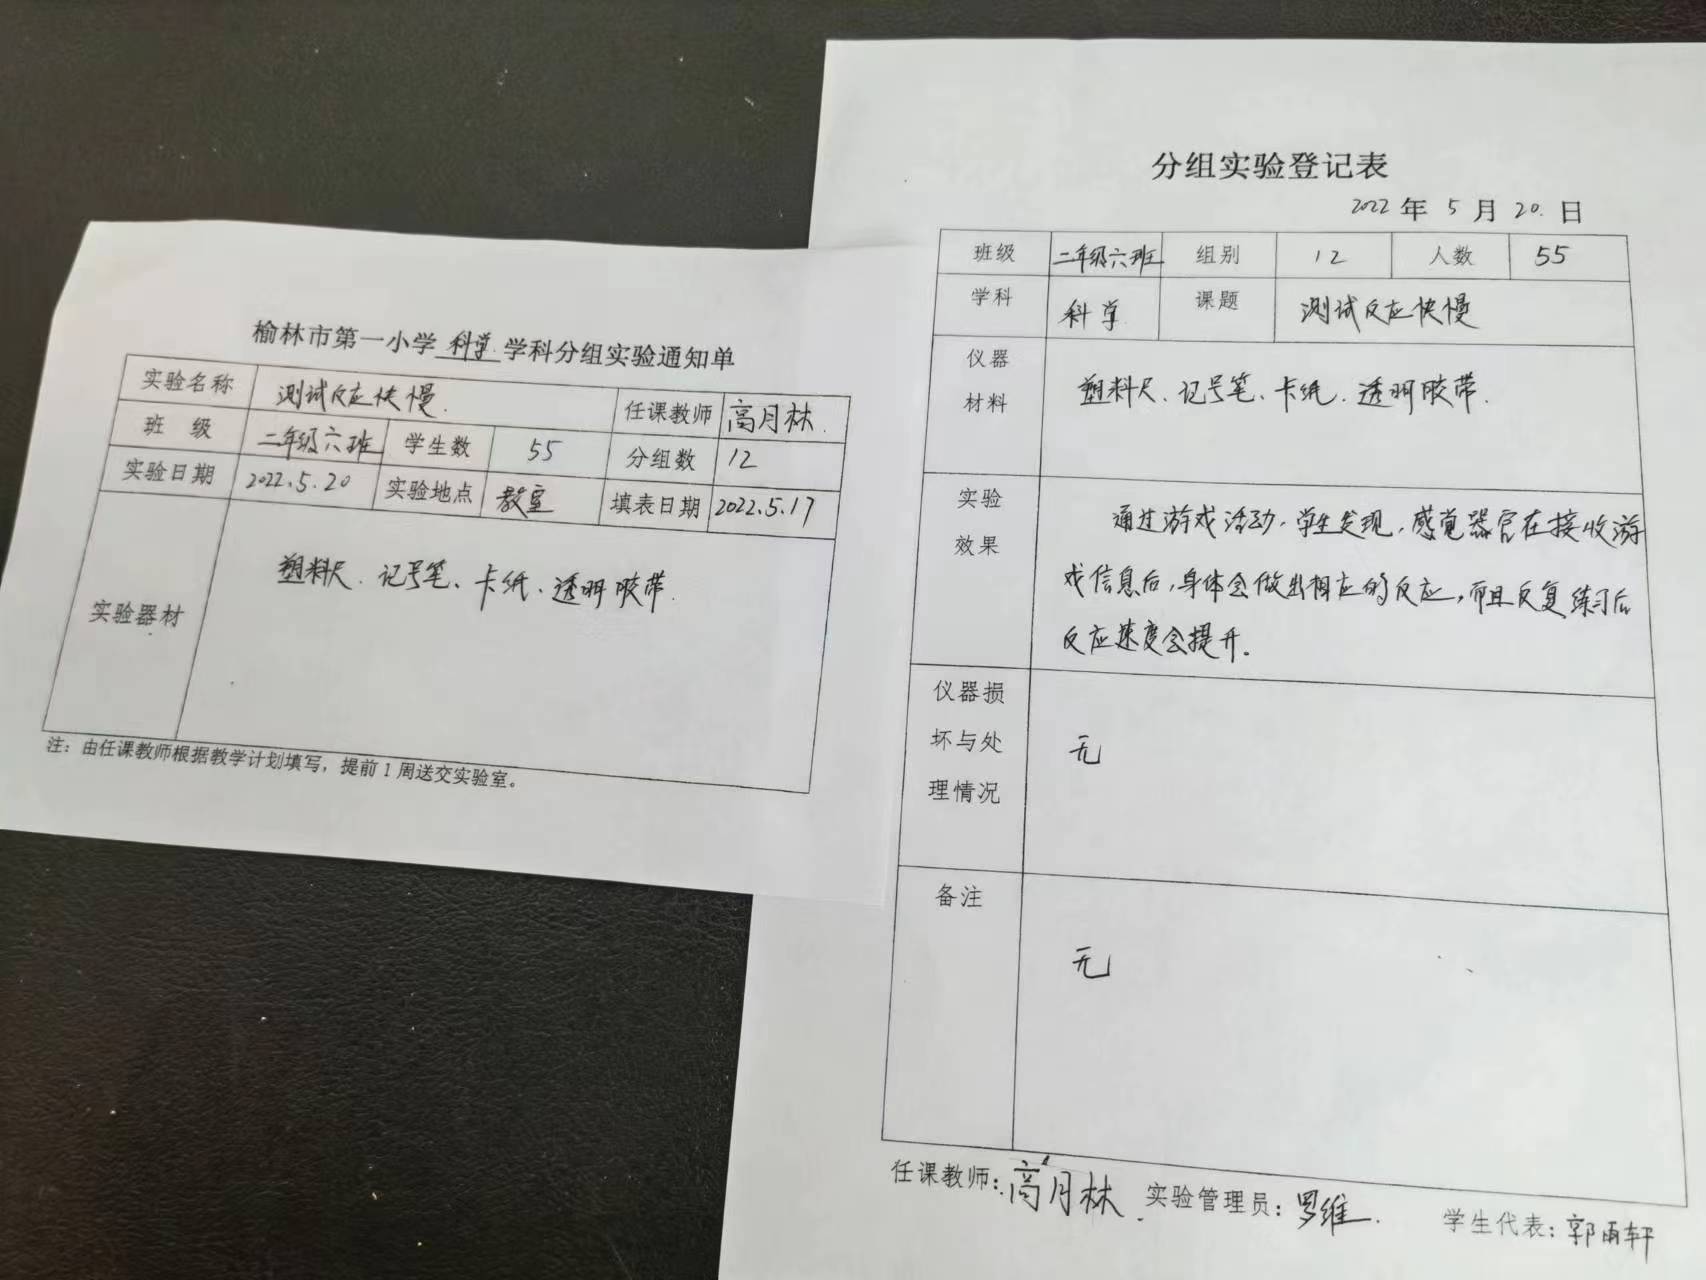 榆林市第一小学科学学科分组实验通知单
实验名称 测试反应快慢. 任课教师 高月林.
班 级 二年级六班 学生数 55 分组数 12
实验日期 2022.5.20 实验地点 教室 填表日期 2022.5.17
实验器材 塑料尺、记号笔、卡纸、透明胶带.
注：由任课教师根据教学计划填写，提前1周送交实验室。
分组实验登记表
2022年5月20.日
班级 二年级六班 组别 12 人数 55
学科 科学 课题 测试反应快慢
仪器
材料
塑料尺、记号笔、卡纸、透明胶带.
实验
效果
通过游戏活动，学生发现，感觉器官在接收游
戏信息后，身体会做出相应的反应，而且反复练习后
反应速度会提升。
仪器损
坏与处
理情况
无
备注
无
任课教师：高月林. 实验管理员：罗维. 学生代表：郭雨轩